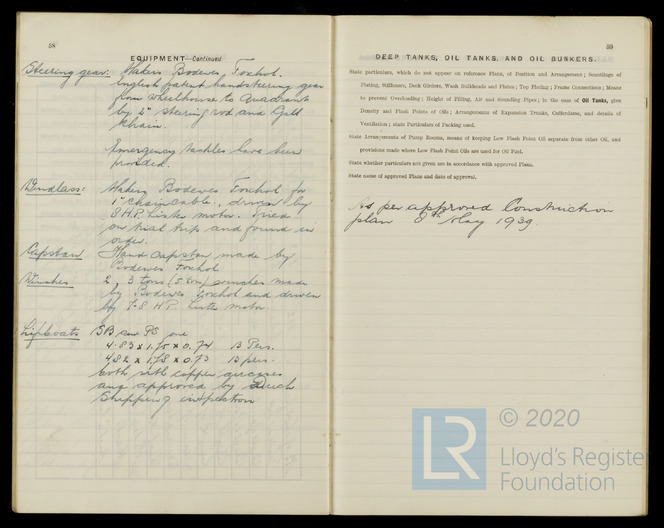 58
EQUIPMENT—Continued
Steering gear: Makers Bodewes, Foxhol.
English patent handsteering gear
from wheelhouse to Quadrant
by 2" steering rod and Gall
chain.
Emergency tackles have been
provided.
Windlass: Makers Bodewes Foxhol for
1" chaincable, driven by
8 H.P. Lister motor. Tried
on trial trip and found in
order.
Capstan Hand capstan made by
Bodewes Foxhol
Winches 2, 3 tons winches made
by Bodewes Foxhol and driven
by 7-8 HP. Lister motor.
Lifeboats SB and PS one
4.83 x 1.75 x 0.74 13 Pers.
4.82 x 1.78 x 0.73 13 pers.
both with copper aircases
and approved by Dutch
Shipping inspection
59
DEEP TANKS, OIL TANKS, AND OIL BUNKERS.
State particulars, which do not appear on reference Plans, of Position and Arrangement; Scantlings of
Plating, Stiffeners, Deck Girders, Wash Bulkheads and Plates; Top Plating; Frame Connections; Means
to prevent Overloading; Height of Filling, Air and Sounding Pipes; in the case of Oil Tanks, give
Density and Flash Points of Oils; Arrangements of Expansion Trunks, Cofferdams, and details of
Ventilation; state Particulars of Packing used.
State Arrangements of Pump Rooms, means of keeping Low Flash Point Oil separate from other Oil, and
provisions made where Low Flash Point Oils are used for Oil Fuel.
State whether particulars not given are in accordance with approved Plans.
State name of approved Plans and date of approval.
As per approved Construction
plan 8th May 1939.
LR
© 2020
Lloyd's Register
Foundation